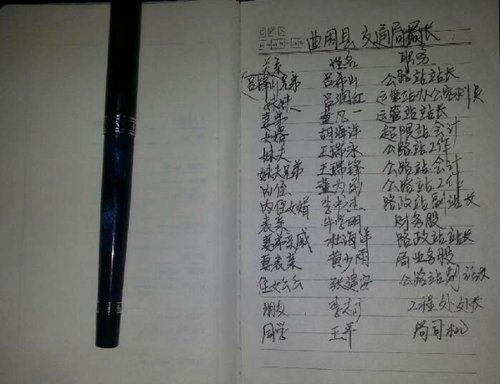 曲周县交通局局长
关系 姓名 职务
兄弟 吕希山 公路站站长
吕润红 运管站办公
妻弟 运管站站长
女婿 胡海洋 超限站会计
妹夫 王瑞永 公路站工作
妹夫兄弟 王瑞锋 公路站会计
内侄 公路站工作
内侄女婿 路政站副站长
表亲 财务股
妻弟亲戚 杜海洋 路政站站长
妻表亲 黄少雨 局业务股
侄女公公 张连安 公路站副站长
朋友 工程处处长
同学 王平 局司机